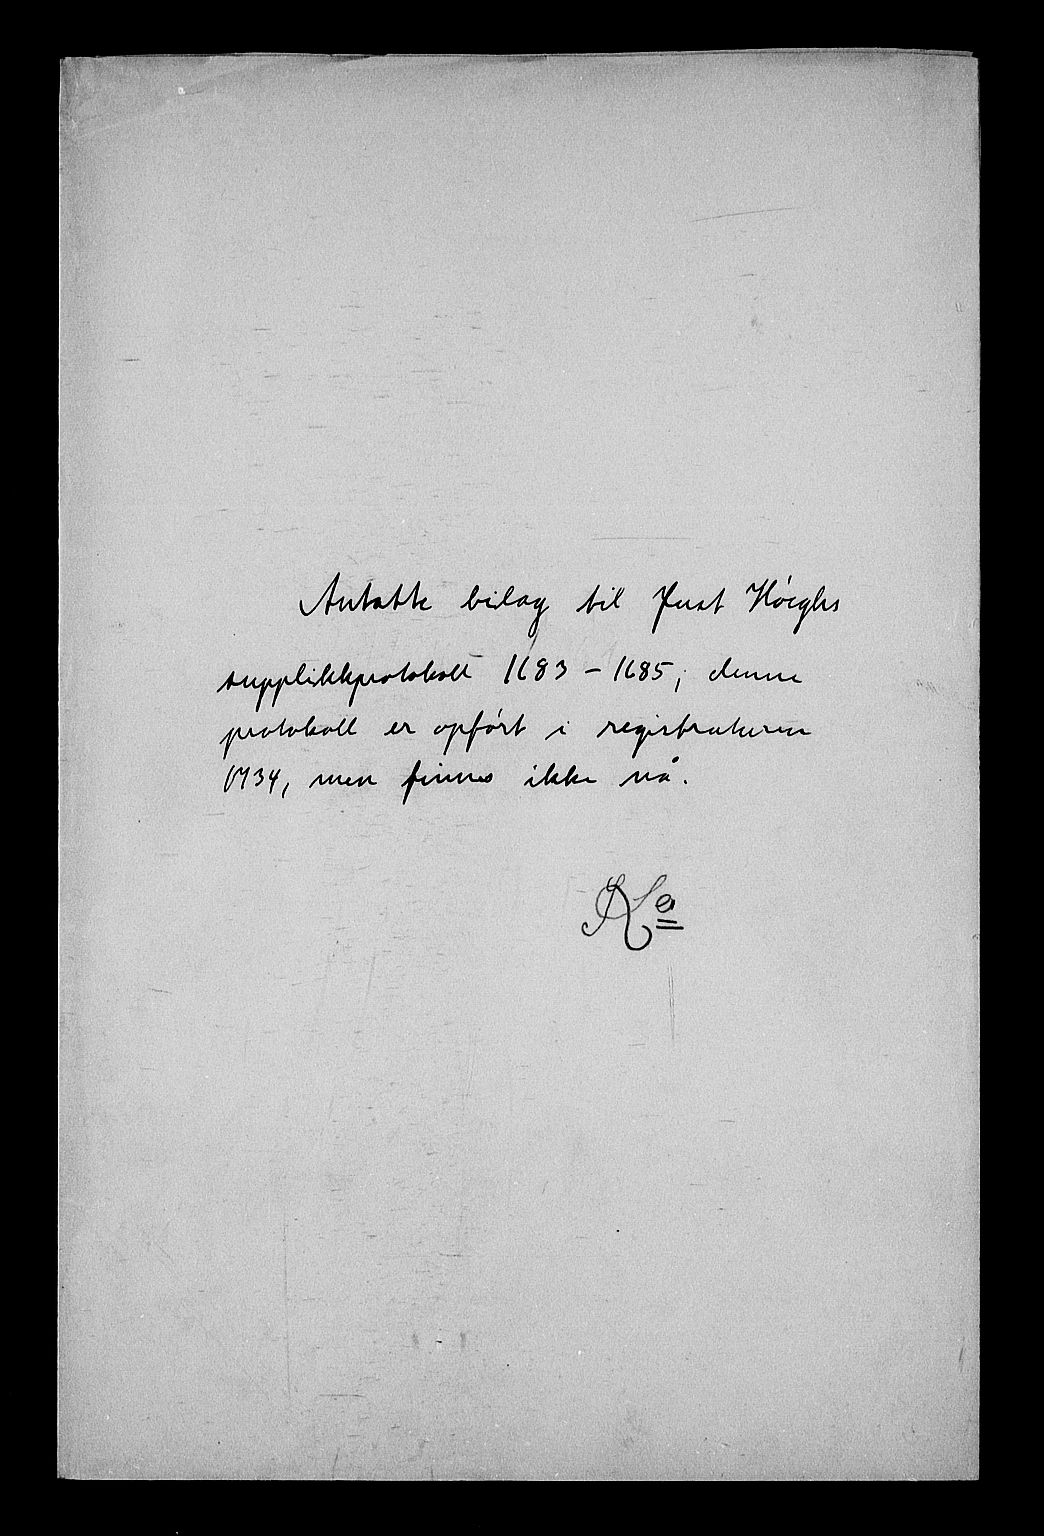 Antatte bilag til Just Høeghs
supplikkprotokoll 1683 – 1685; denne
protokoll er opført i registraturen
1734, men finnes ikke nå.